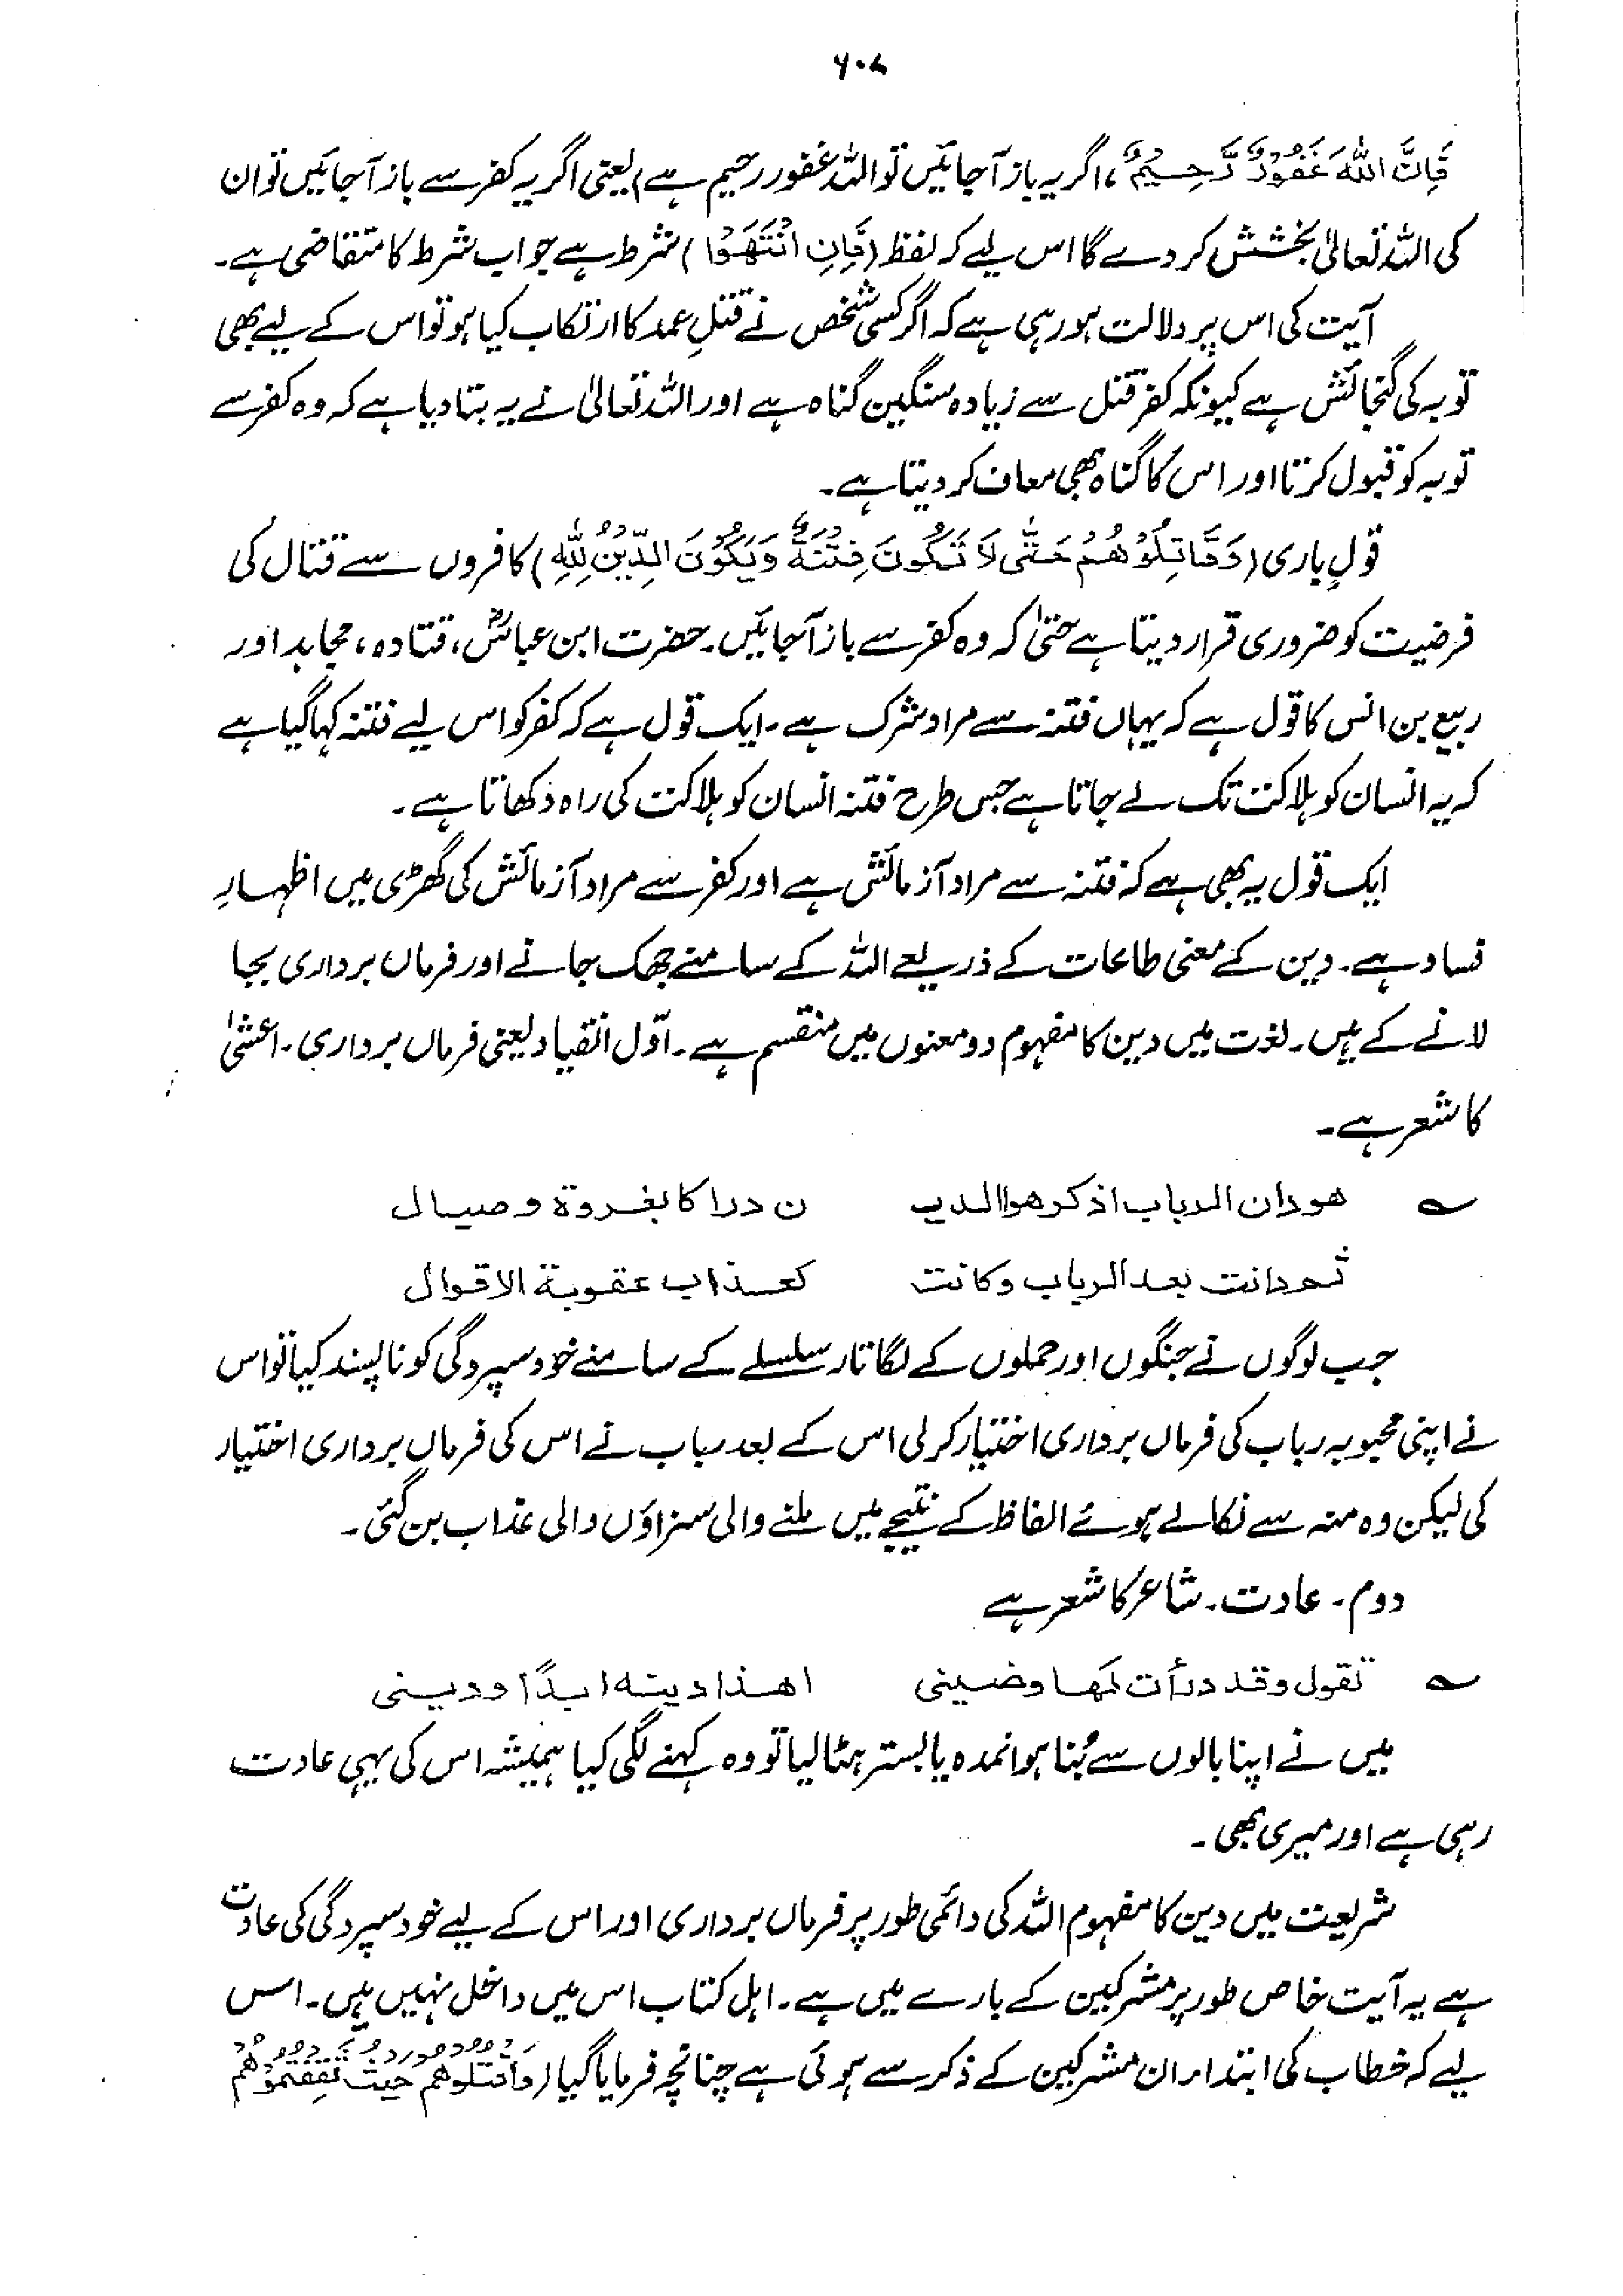 ۶۰۸
فَاِنَّ اللّٰهَ غَفُوْرٌ رَّحِيْمٌ، اگر یہ باز آجائیں تو اللہ غفور رحیم ہے) یعنی اگر یہ کفر سے باز آجائیں تو ان
کی اللہ تعالیٰ بخشش کر دے گا اس لیے کہ لفظ (فَاِنِ انْتَهَوْا) شرط ہے جو اب شرط کا متقاضی ہے۔
آیت کی اس پر دلالت ہو رہی ہے کہ اگر کسی شخص نے قتلِ عمد کا ارتکاب کیا ہو تو اس کے لیے بھی
توبہ کی گنجائش ہے کیونکہ کفر قتل سے زیادہ سنگین گناہ ہے اور اللہ تعالیٰ نے یہ بتا دیا ہے کہ وہ کفر سے
توبہ کو قبول کرتا اور اس کا گناہ بھی معاف کر دیتا ہے۔
قولِ باری (وَقَاتِلُوْهُمْ حَتّٰى لَا تَكُوْنَ فِتْنَةٌ وَّيَكُوْنَ الدِّيْنُ لِلّٰهِ) کافروں سے قتال کی
فرضیت کو ضروری قرار دیتا ہے حتیٰ کہ وہ کفر سے باز آجائیں۔ حضرت ابن عباسؓ، قتادہ، مجاہد اور
ربیع بن انس کا قول ہے کہ یہاں فتنہ سے مراد شرک ہے۔ ایک قول ہے کہ کفر کو اس لیے فتنہ کہا گیا ہے
کہ یہ انسان کو ہلاکت تک لے جاتا ہے جس طرح فتنہ انسان کو ہلاکت کی راہ دکھاتا ہے۔
ایک قول یہ بھی ہے کہ فتنہ سے مراد آزمائش ہے اور کفر سے مراد آزمائش کی گھڑی میں اظہارِ
فساد ہے۔ دین کے معنی طاعات کے ذریعے اللہ کے سامنے جھک جانے اور فرماں برداری بجا
لانے کے ہیں۔ لغت میں دین کا مفہوم دو معنوں میں منقسم ہے۔ اوّل انقیاد یعنی فرماں برداری۔ اعشیٰ
کا شعر ہے۔
؎ هودان الرباب اذكرهوا الديـ ن دراكا بغزوة وصيال
ثم دانت بعد الرباب وكانت كعذاب عقوبة الاقوال
جب لوگوں نے جنگوں اور حملوں کے لگاتار سلسلے کے سامنے خود سپردگی کو ناپسند کیا تو اس
نے اپنی محبوبہ رباب کی فرماں برداری اختیار کر لی اس کے بعد رباب نے اس کی فرماں برداری اختیار
کی لیکن وہ منہ سے نکالے ہوئے الفاظ کے نتیجے میں ملنے والی سزاؤں والی عذاب بن گئی۔
دوم۔ عادت۔ شاعر کا شعر ہے
؎ تقول وقد درأت لها وضيني اهذا دينه ابدًا وديني
میں نے اپنا بالوں سے بُنا ہوا نمدہ یا بستر ہٹا لیا تو وہ کہنے لگی کیا ہمیشہ اس کی یہی عادت
رہی ہے اور میری بھی۔
شریعت میں دین کا مفہوم اللہ کی دائمی طور پر فرماں برداری اور اس کے لیے خود سپردگی کی عادت
ہے یہ آیت خاص طور پر مشرکین کے بارے میں ہے۔ اہل کتاب اس میں داخل نہیں ہیں۔ اس
لیے کہ خطاب کی ابتداء ان مشرکین کے ذکر سے ہوئی ہے چنانچہ فرمایا گیا (وَاقْتُلُوْهُمْ حَيْثُ ثَقِفْتُمُوْهُمْ